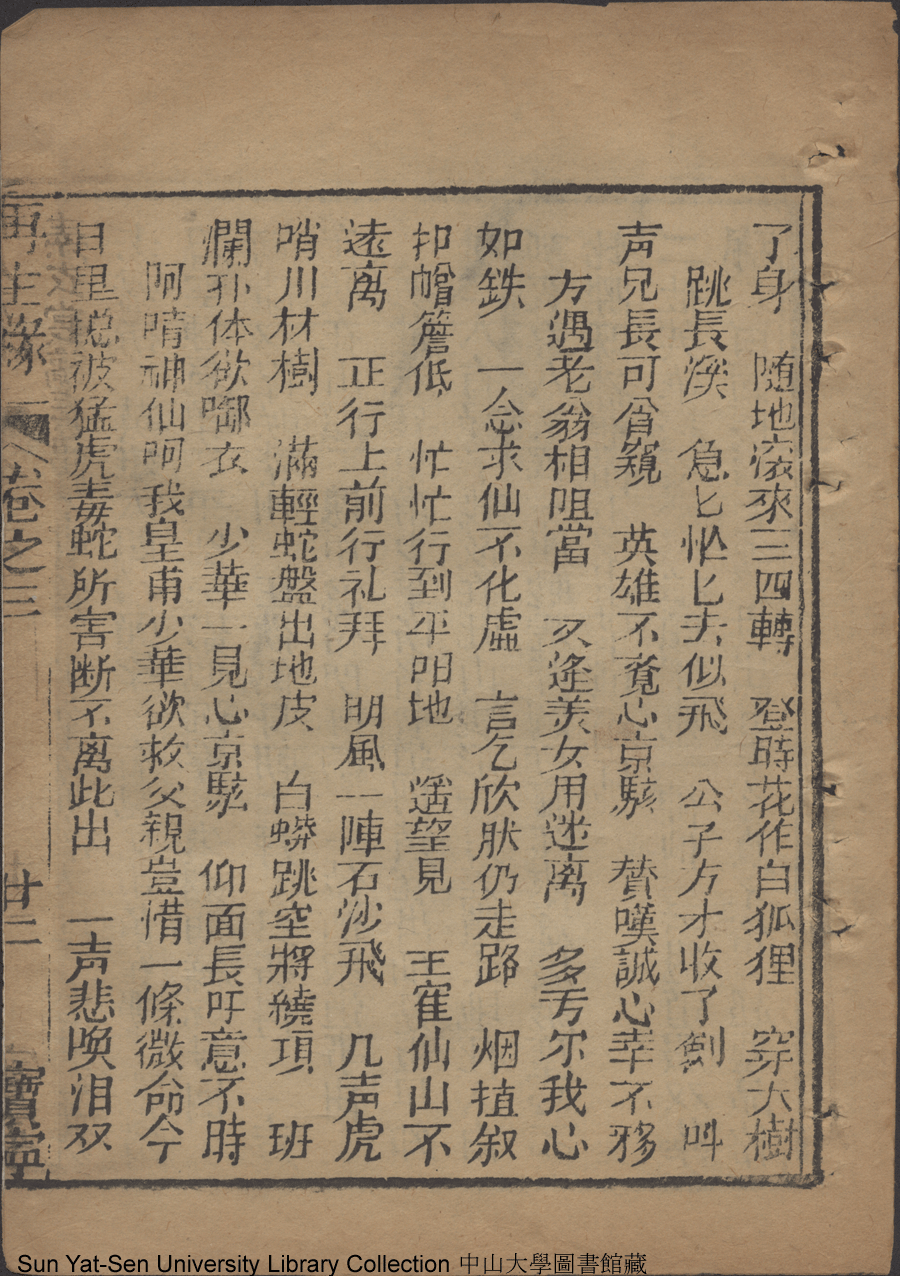 了身　随地滚來三四轉　登時花作白狐狸　穿大樹
跳長溪　急匕忙匕去似飛　公子方才收了劍　叫
声兄長可曾窺　英雄不覔心京駭　賛嘆誠心幸不移
方遇老翁相咀當　又逢美女用迷离　多亏尔我心
如鉄　一念求仙不化虛　言乞欣肰仍走路　烟植叙
扣帽簷低　忙忙行到平阳地　遥望見　王寉仙山不
遠离　正行上前行礼拜　明風一陣石沙飛　几声虎
哨川材樹　滿輕蛇盤出地皮　白蟒跳空將繞項　班
斕邪体欲啣衣　少華一見心京駭　仰面長吁意不時
阿晴神仙呵我皇甫少華欲救父親豈惜一條微命今
日里捴被猛虎毒蛇所害断不离此出　一声悲唤泪双
再生緣　卷之三　廿二　寶寧
Sun Yat-Sen University Library Collection 中山大學圖書館藏